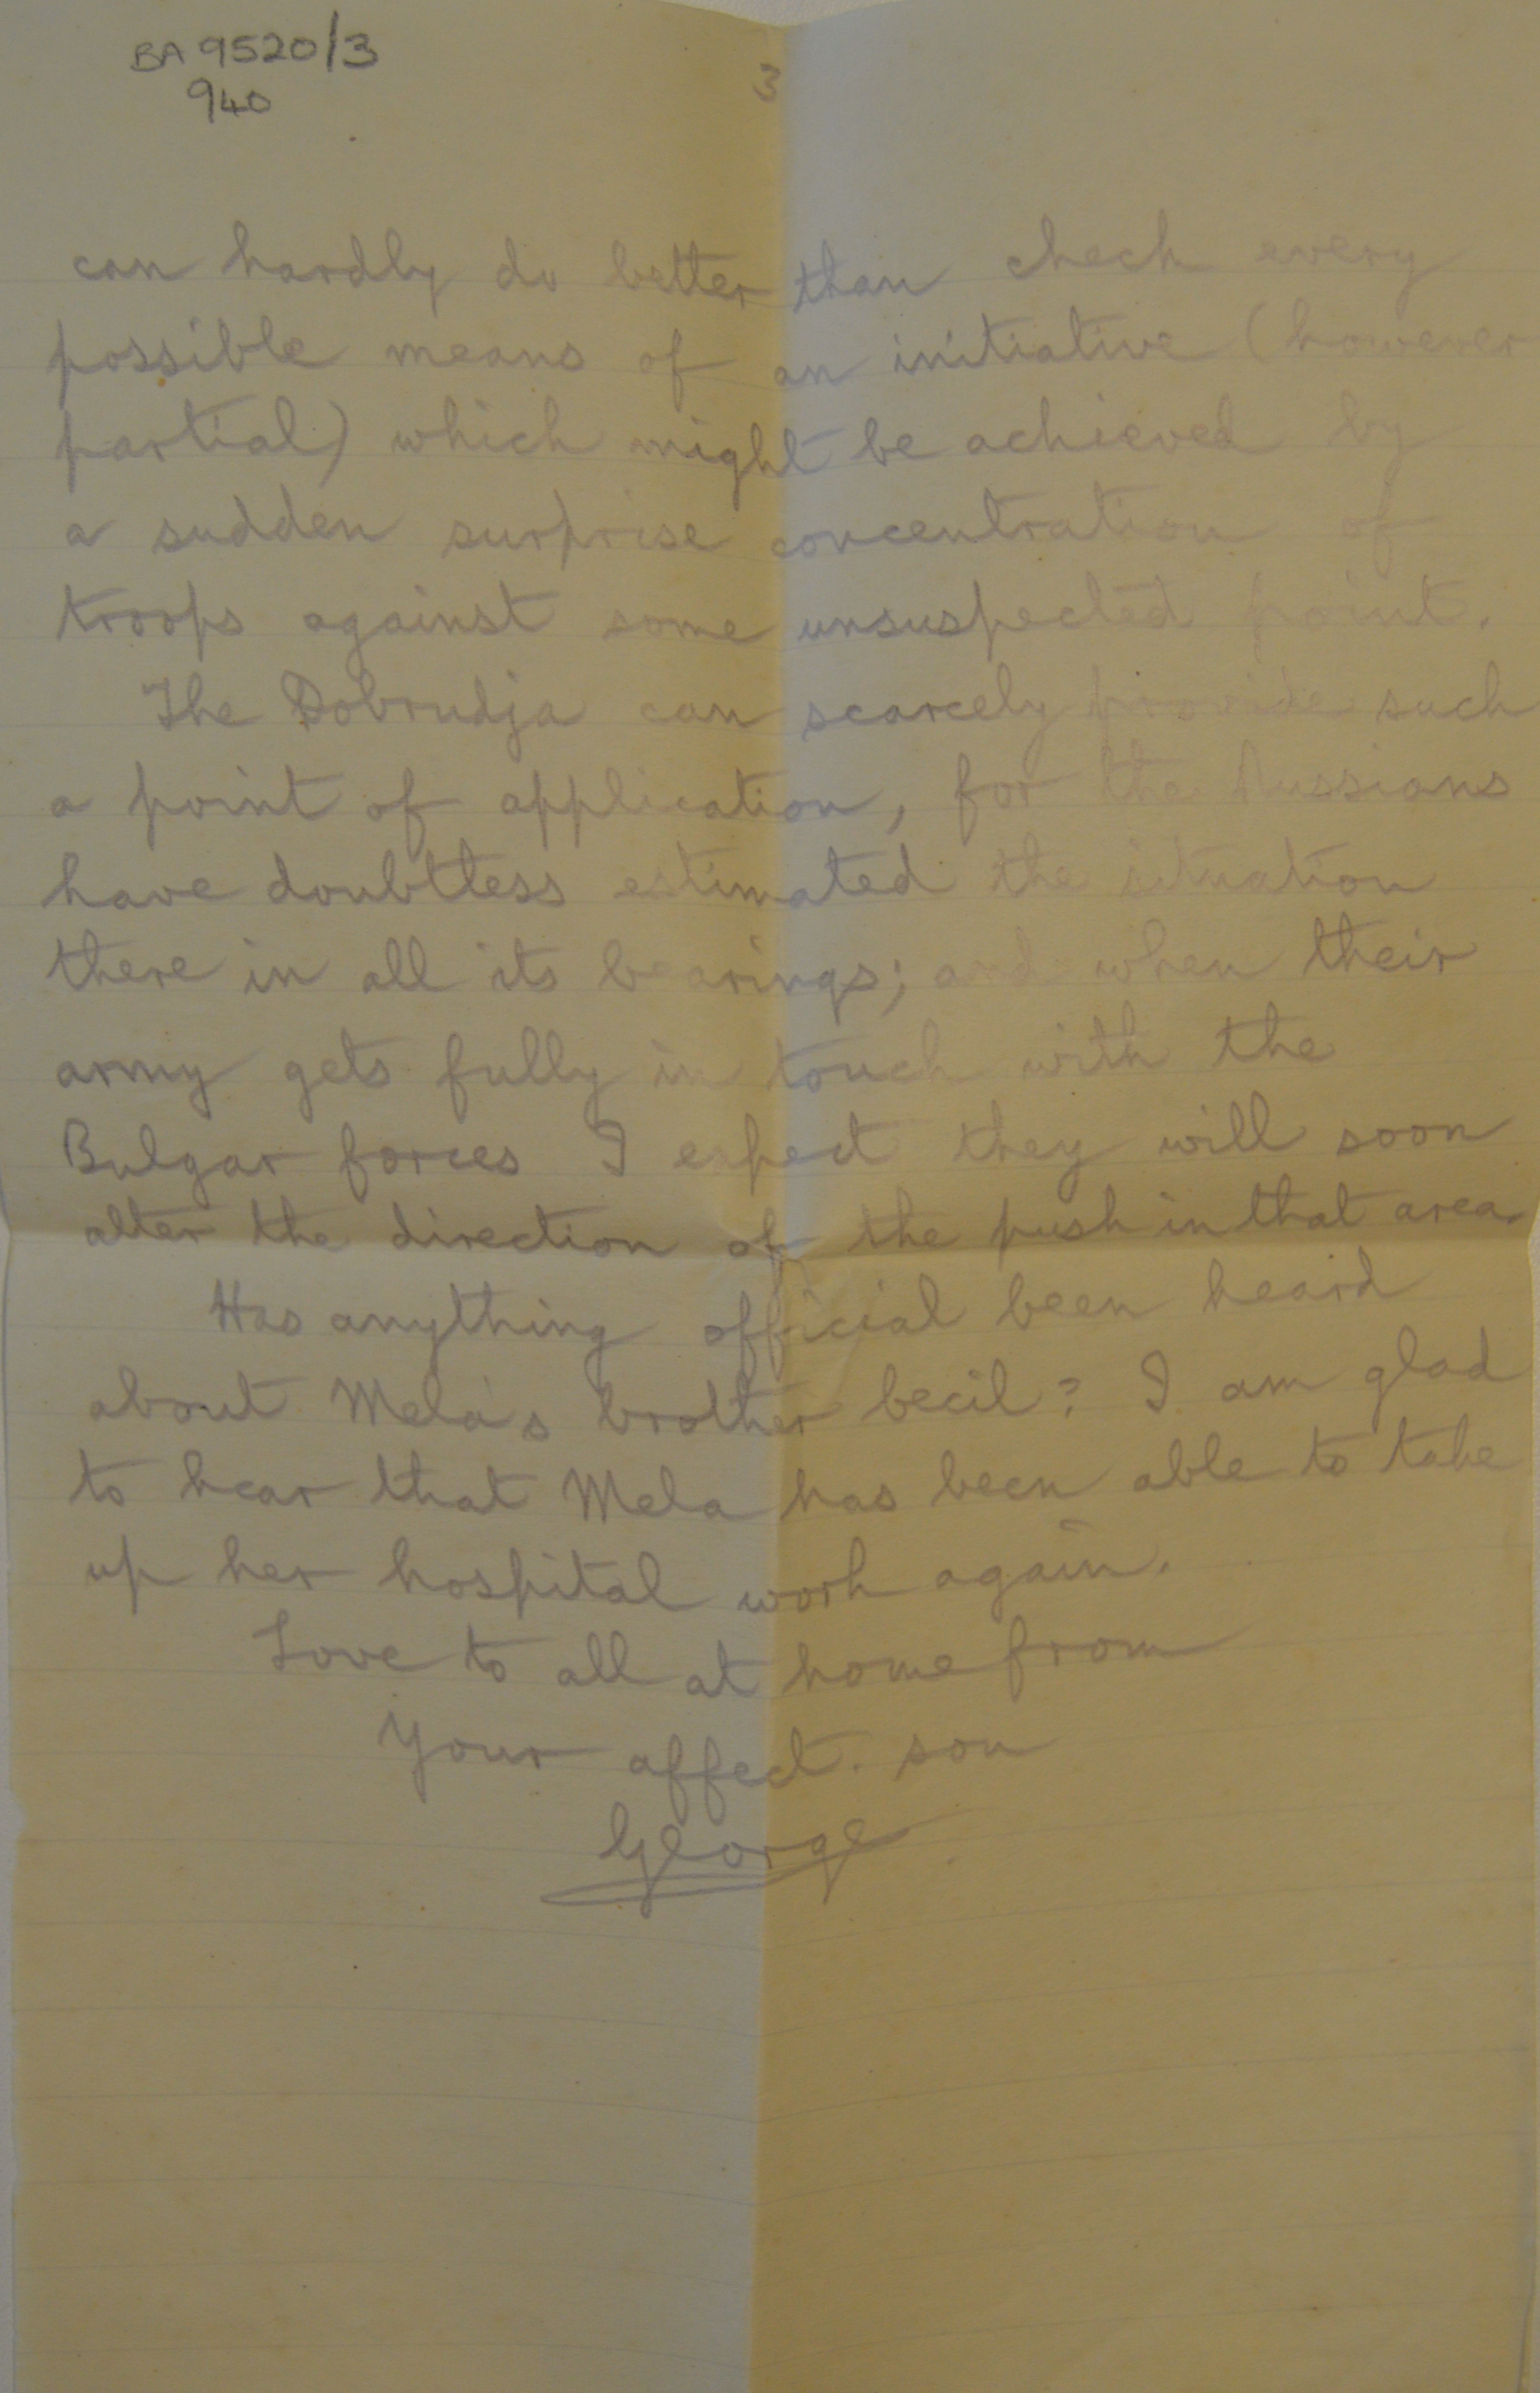 BA 9520/3
940
3
can hardly do better than check every
possible means of an initiative (however
partial) which might be achieved by
a sudden surprise concentration of
troops against some unsuspected point.
The Dobrudja can scarcely provide such
a point of application, for the Russians
have doubtless estimated the situation
there in all its bearings; and when their
army gets fully in touch with the
Bulgar forces I expect they will soon
alter the direction of the push in that area.
Has anything official been heard
about Mela's brother Cecil? I am glad
to hear that Mela has been able to take
up her hospital work again.
Love to all at home from
Your affect. son
George